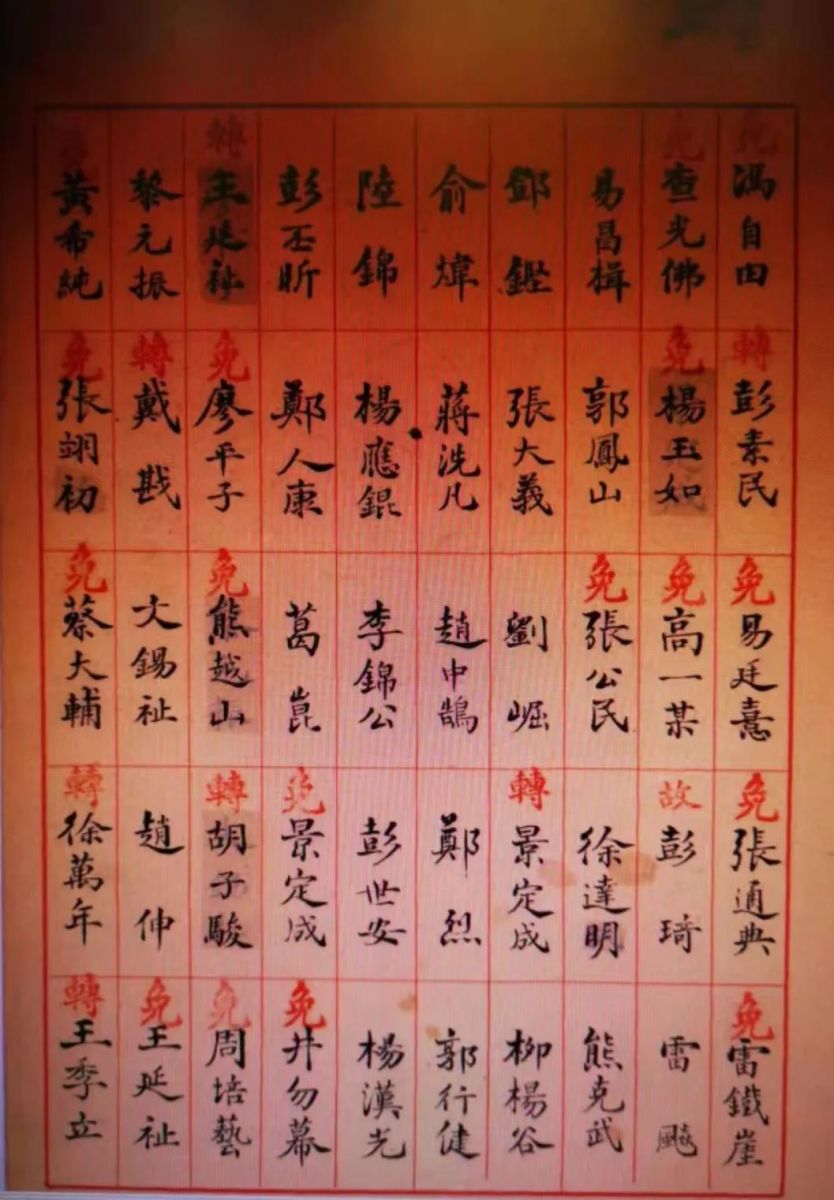 免 馮自由
轉 彭素民
免 易廷憙
免 張通典
免 雷鐵崖
免 查光佛
免 楊玉如
免 高一某
故 彭琦
雷飈
易昌楫
郭鳳山
免 張公民
徐達明
熊克武
鄧鏗
張大義
劉崛
轉 景定成
柳楊谷
俞煒
蔣洗凡
趙中鵠
鄭烈
郭行健
陸錦
楊應錕
李錦公
彭世安
楊漢光
彭丕昕
鄭人康
葛崑
免 景定成
免 井勿幕
轉 王延祉
免 廖平子
免 熊越山
轉 胡子駿
免 周培藝
黎元振
轉 戴戡
文錫祉
趙伸
免 王延祉
黃希純
免 張翊初
免 蔡大輔
轉 徐萬年
轉 王季立